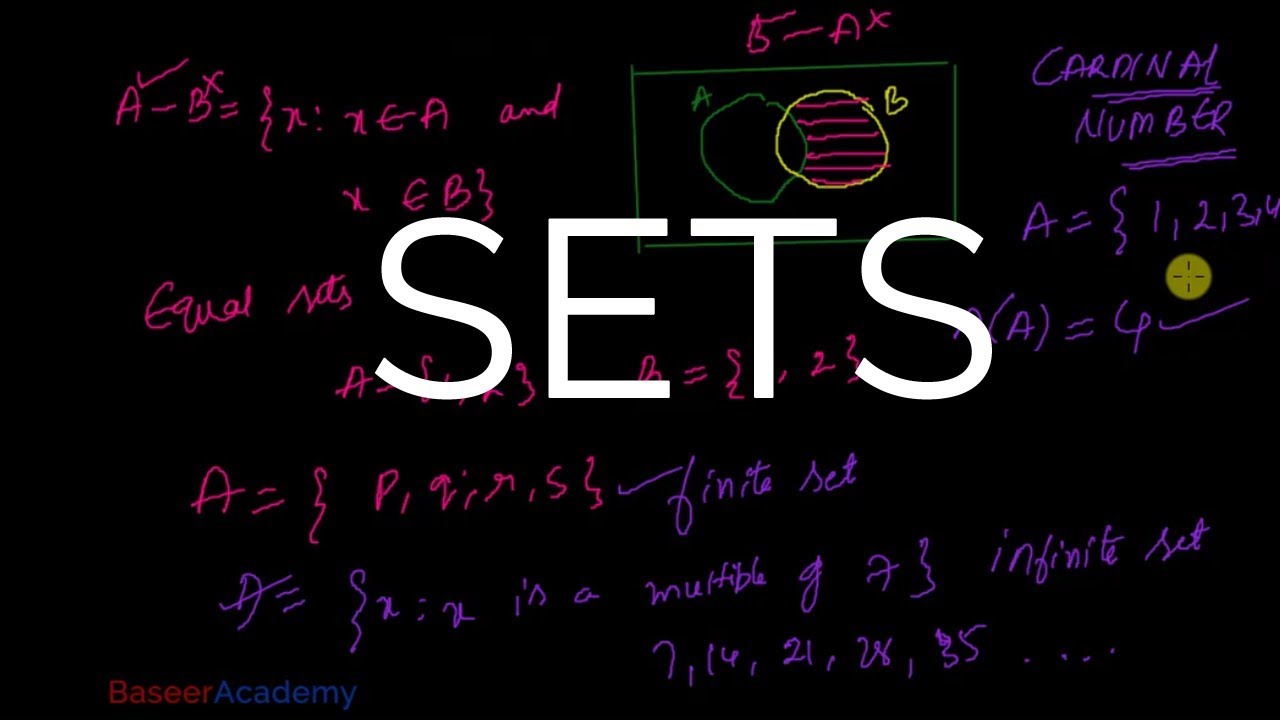 B - A ×
A ✓ - B × = {x : x ∈ A and
x ∈ B}
A B
CARDINAL
NUMBER
A = { 1, 2, 3, 4
n(A) = 4 ✓
SETS
Equal sets
A = {1, 2} B = { , 2}
A = { p, q, r, s} ✓ finite set
A = {x : x is a multible of 7} infinite set
7, 14, 21, 28, 35 . . . .
BaseerAcademy